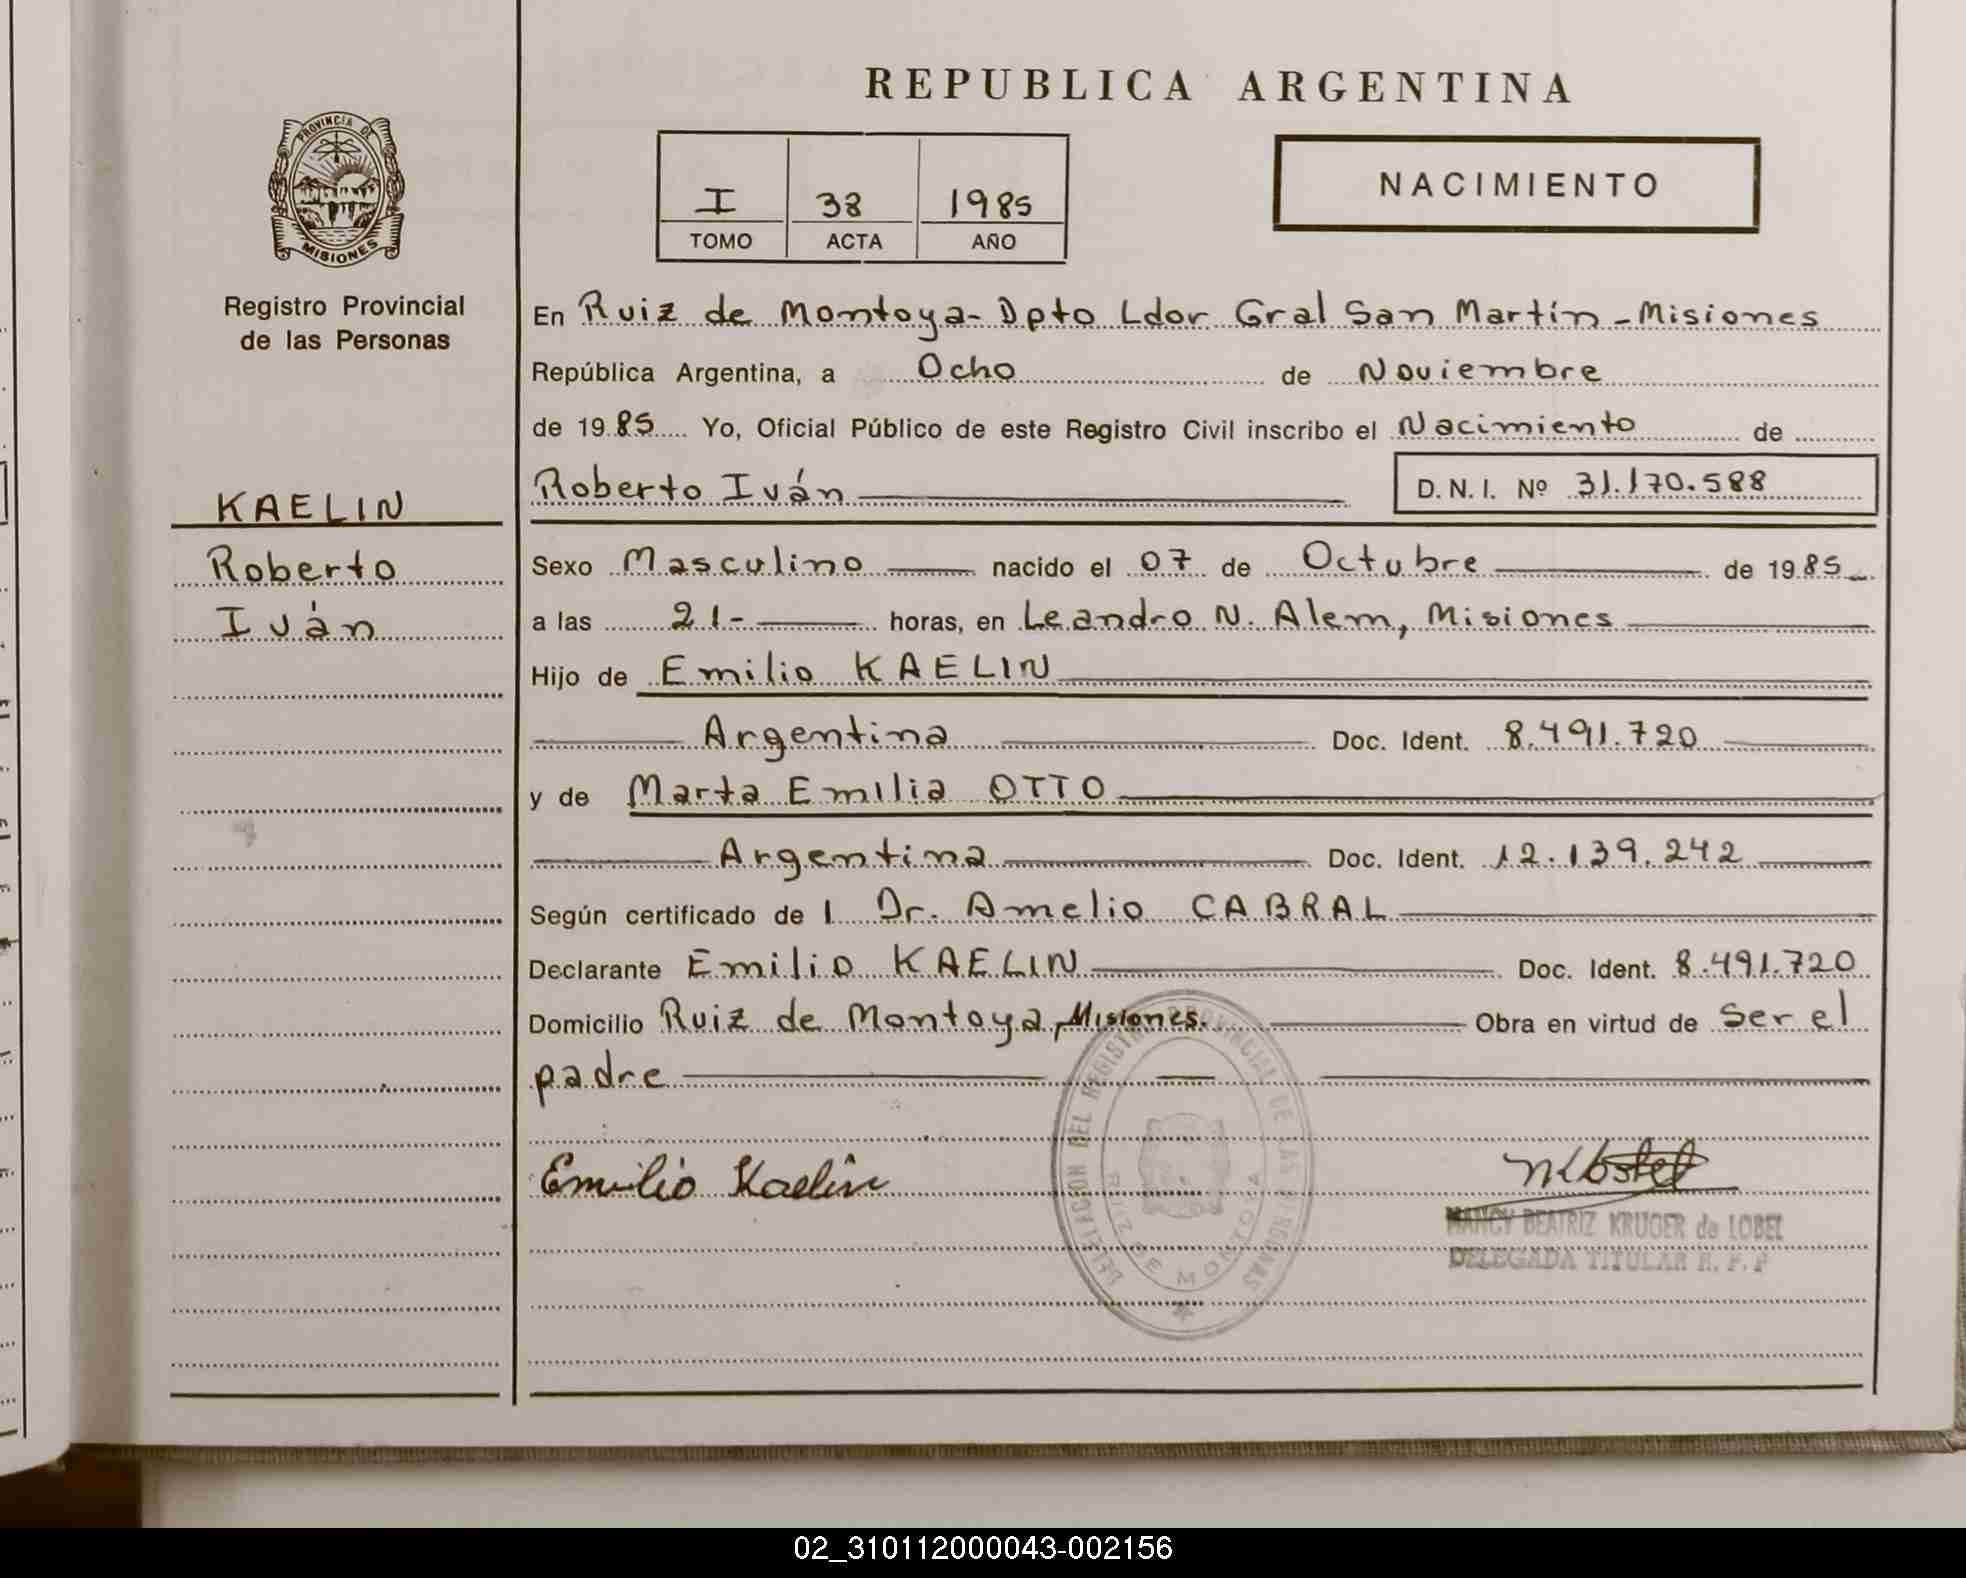 REPUBLICA ARGENTINA
PROVINCIA DE
MISIONES
Registro Provincial
de las Personas
I 38 1985
TOMO ACTA AÑO
NACIMIENTO
En Ruiz de Montoya- Dpto Ldor Gral San Martín - Misiones
República Argentina, a Ocho de Noviembre
de 1985 Yo, Oficial Público de este Registro Civil inscribo el Nacimiento de
KAELIN
Roberto
Iván
Roberto Iván
D.N.I. Nº 31.170.588
Sexo Masculino nacido el 07 de Octubre de 1985
a las 21- horas, en Leandro N. Alem, Misiones
Hijo de Emilio KAELIN
Argentina Doc. Ident. 8.491.720
y de Marta Emilia OTTO
Argentina Doc. Ident. 12.139.242
Según certificado de l Dr. Amelio CABRAL
Declarante Emilio KAELIN Doc. Ident. 8.491.720
Domicilio Ruiz de Montoya, Misiones. Obra en virtud de Ser el
padre
DELEGACION DEL REGISTRO PROVINCIAL DE LAS PERSONAS
RUIZ DE MONTOYA
Emilio Kaelin
NANCY BEATRIZ KRUGER de LOBEL
DELEGADA TITULAR R. P. P
02_310112000043-002156